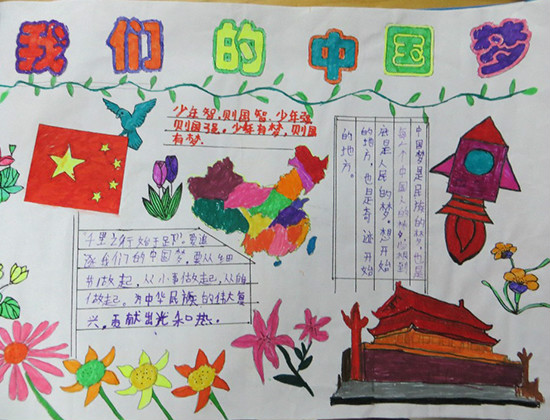 我们的中国梦
少年智,则国智、少年强
则国强。少年有梦,则国
有梦.
中国梦是民族的梦,也是
每个中国人的梦,归根到
底是人民的梦。想开始
的地方,也是奇迹开始
的地方。
“千里之行始于足下”,要追
逐我们的中国梦,要从细
节做起,从小事做起,从自
己做起,为中华民族的伟大复
兴,贡献出光和热。